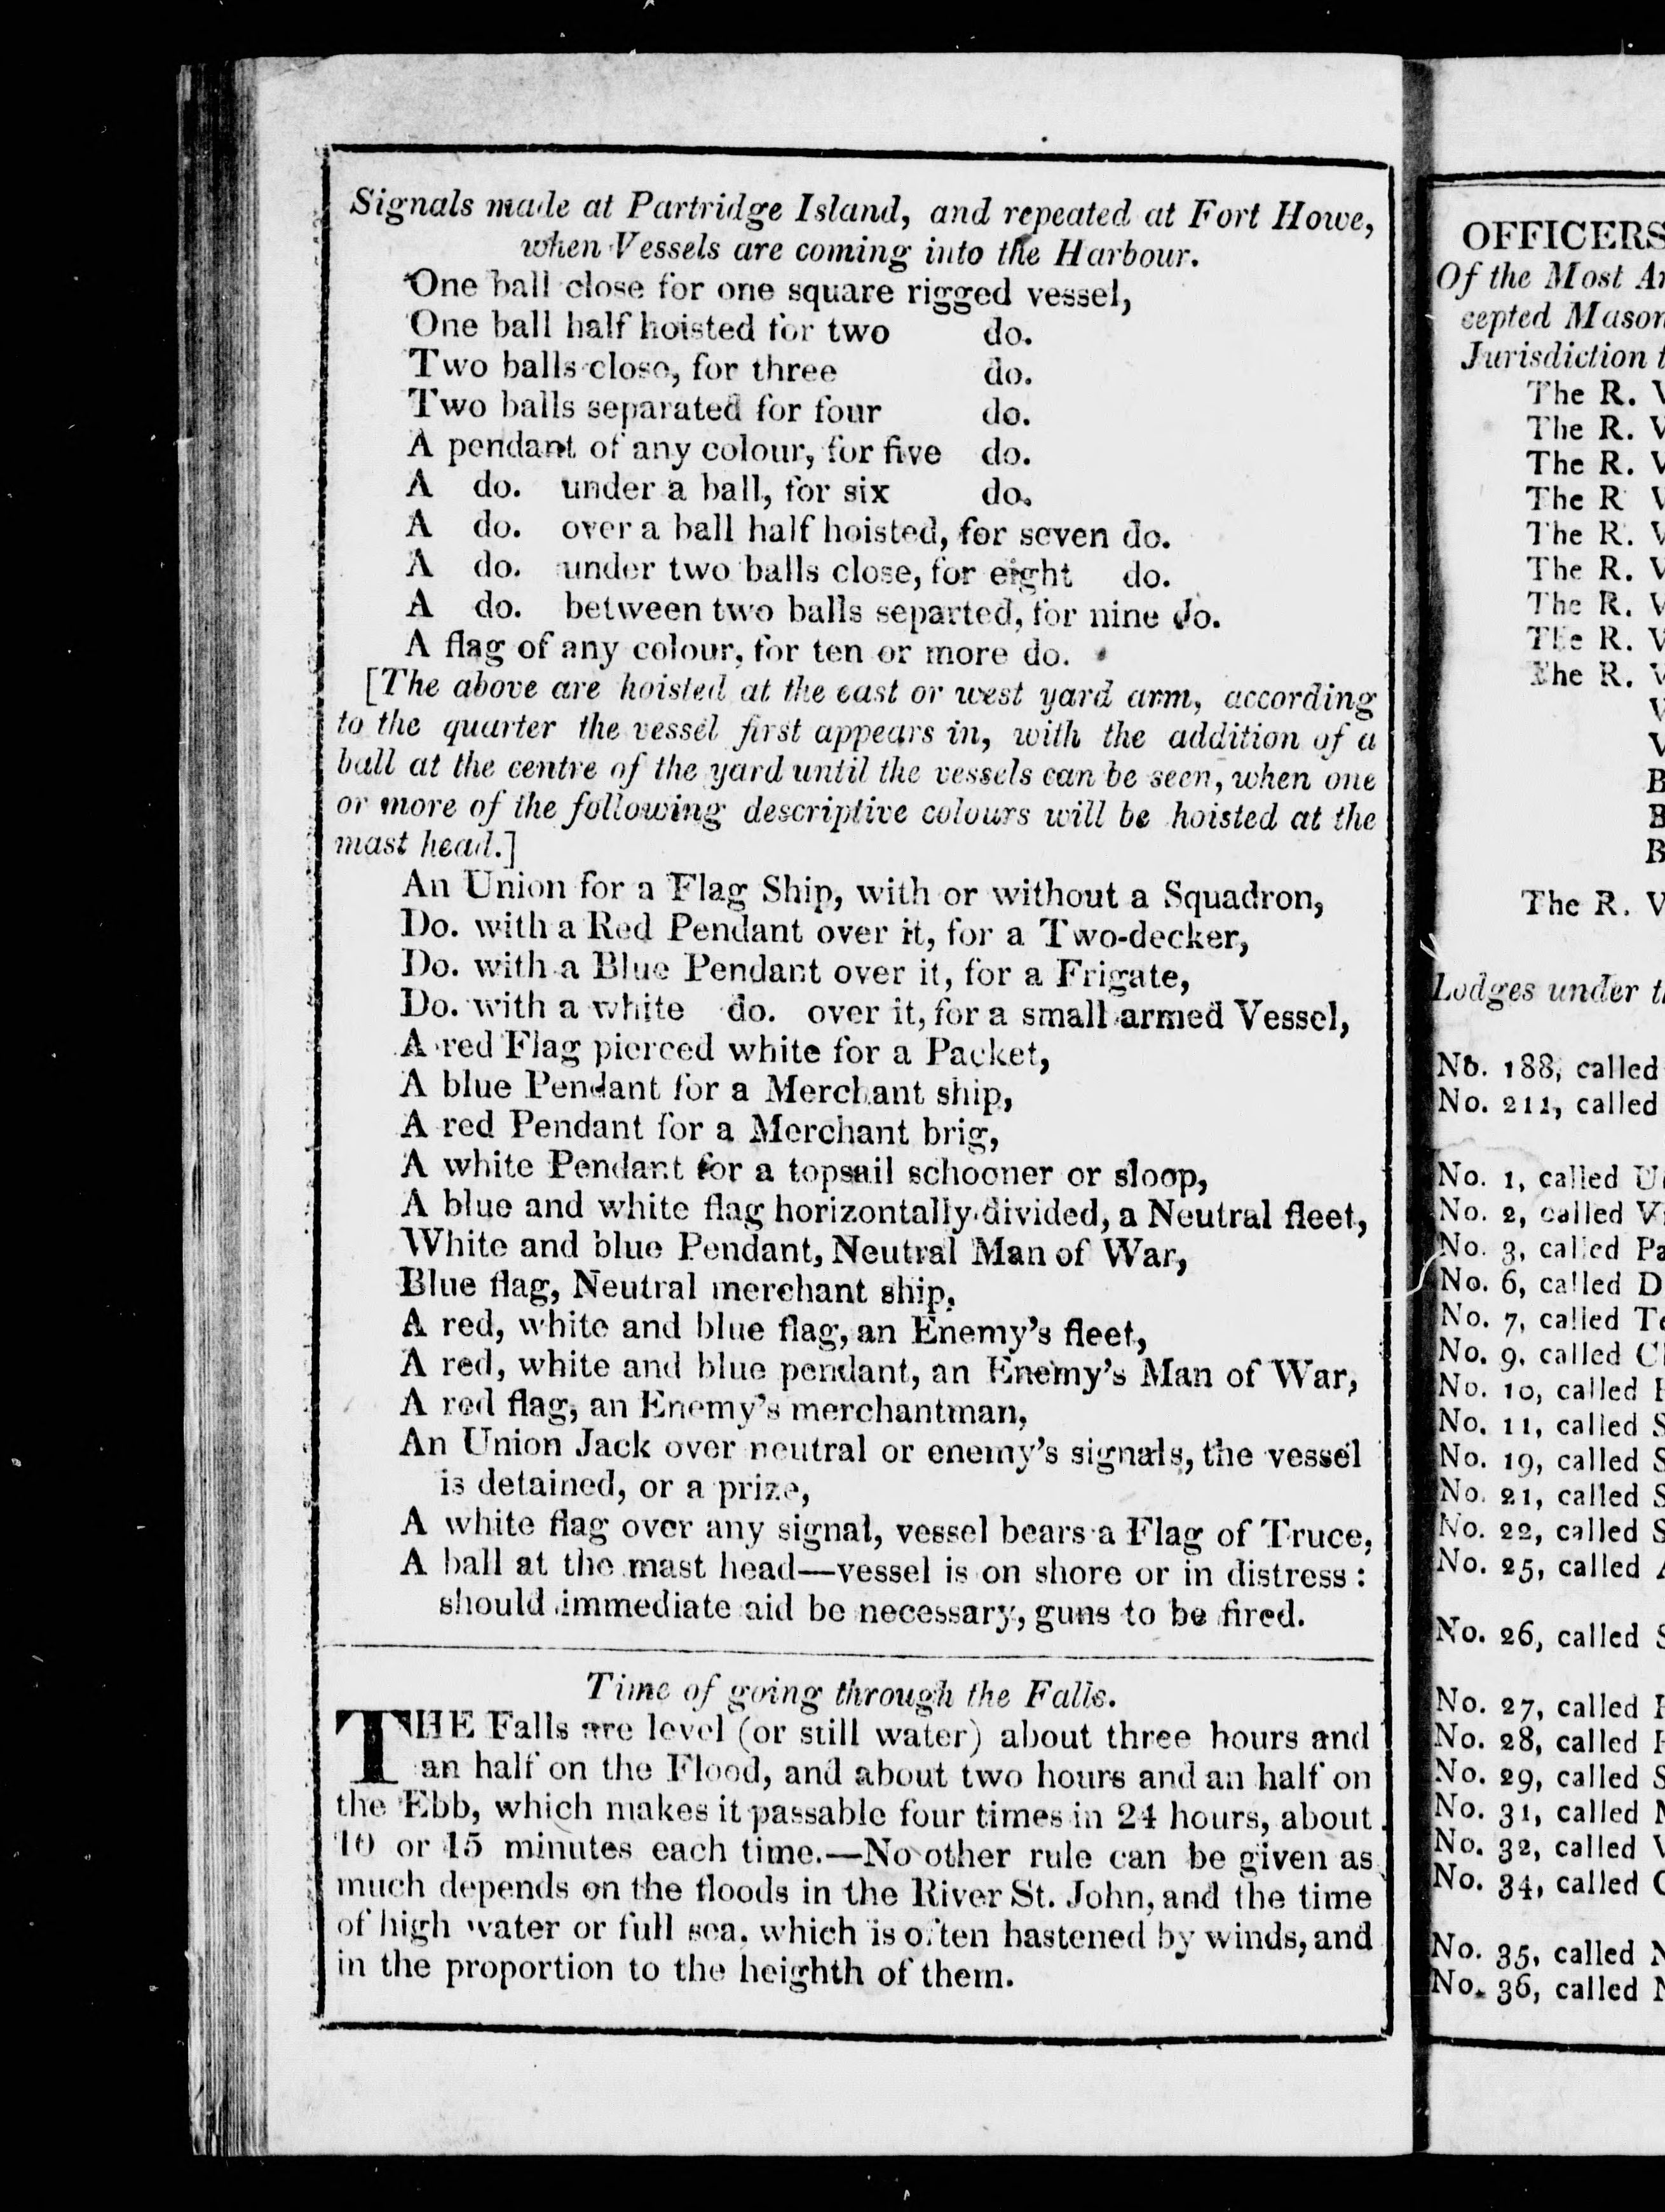 Signals made at Partridge Island, and repeated at Fort Howe,
when Vessels are coming into the Harbour.
One ball close for one square rigged vessel,
One ball half hoisted for two do.
Two balls close, for three do.
Two balls separated for four do.
A pendant of any colour, for five do.
A do. under a ball, for six do.
A do. over a ball half hoisted, for seven do.
A do. under two balls close, for eight do.
A do. between two balls separted, for nine do.
A flag of any colour, for ten or more do.
[The above are hoisted at the east or west yard arm, according
to the quarter the vessel first appears in, with the addition of a
ball at the centre of the yard until the vessels can be seen, when one
or more of the following descriptive colours will be hoisted at the
mast head.]
An Union for a Flag Ship, with or without a Squadron,
Do. with a Red Pendant over it, for a Two-decker,
Do. with a Blue Pendant over it, for a Frigate,
Do. with a white do. over it, for a small armed Vessel,
A red Flag pierced white for a Packet,
A blue Pendant for a Merchant ship,
A red Pendant for a Merchant brig,
A white Pendant for a topsail schooner or sloop,
A blue and white flag horizontally divided, a Neutral fleet,
White and blue Pendant, Neutral Man of War,
Blue flag, Neutral merchant ship,
A red, white and blue flag, an Enemy's fleet,
A red, white and blue pendant, an Enemy's Man of War,
A red flag, an Enemy's merchantman,
An Union Jack over neutral or enemy's signals, the vessel
is detained, or a prize,
A white flag over any signal, vessel bears a Flag of Truce,
A ball at the mast head—vessel is on shore or in distress:
should immediate aid be necessary, guns to be fired.
Time of going through the Falls.
THE Falls are level (or still water) about three hours and
an half on the Flood, and about two hours and an half on
the Ebb, which makes it passable four times in 24 hours, about
10 or 15 minutes each time.—No other rule can be given as
much depends on the floods in the River St. John, and the time
of high water or full sea, which is often hastened by winds, and
in the proportion to the heighth of them.
OFFICERS
Of the Most
cepted Mason
Jurisdiction
The R.
The R.
The R.
The R
The R.
The R.
The R.
The R.
The R.
B
B
B
The R.
Lodges under
No. 188, called
No. 211, called
No. 1, called
No. 2, called
No. 3, called
No. 6, called
No. 7, called
No. 9, called
No. 10, called
No. 11, called
No. 19, called
No. 21, called
No. 22, called
No. 25, called
No. 26, called
No. 27, called
No. 28, called
No. 29, called
No. 31, called
No. 32, called
No. 34, called
No. 35, called
No. 36, called